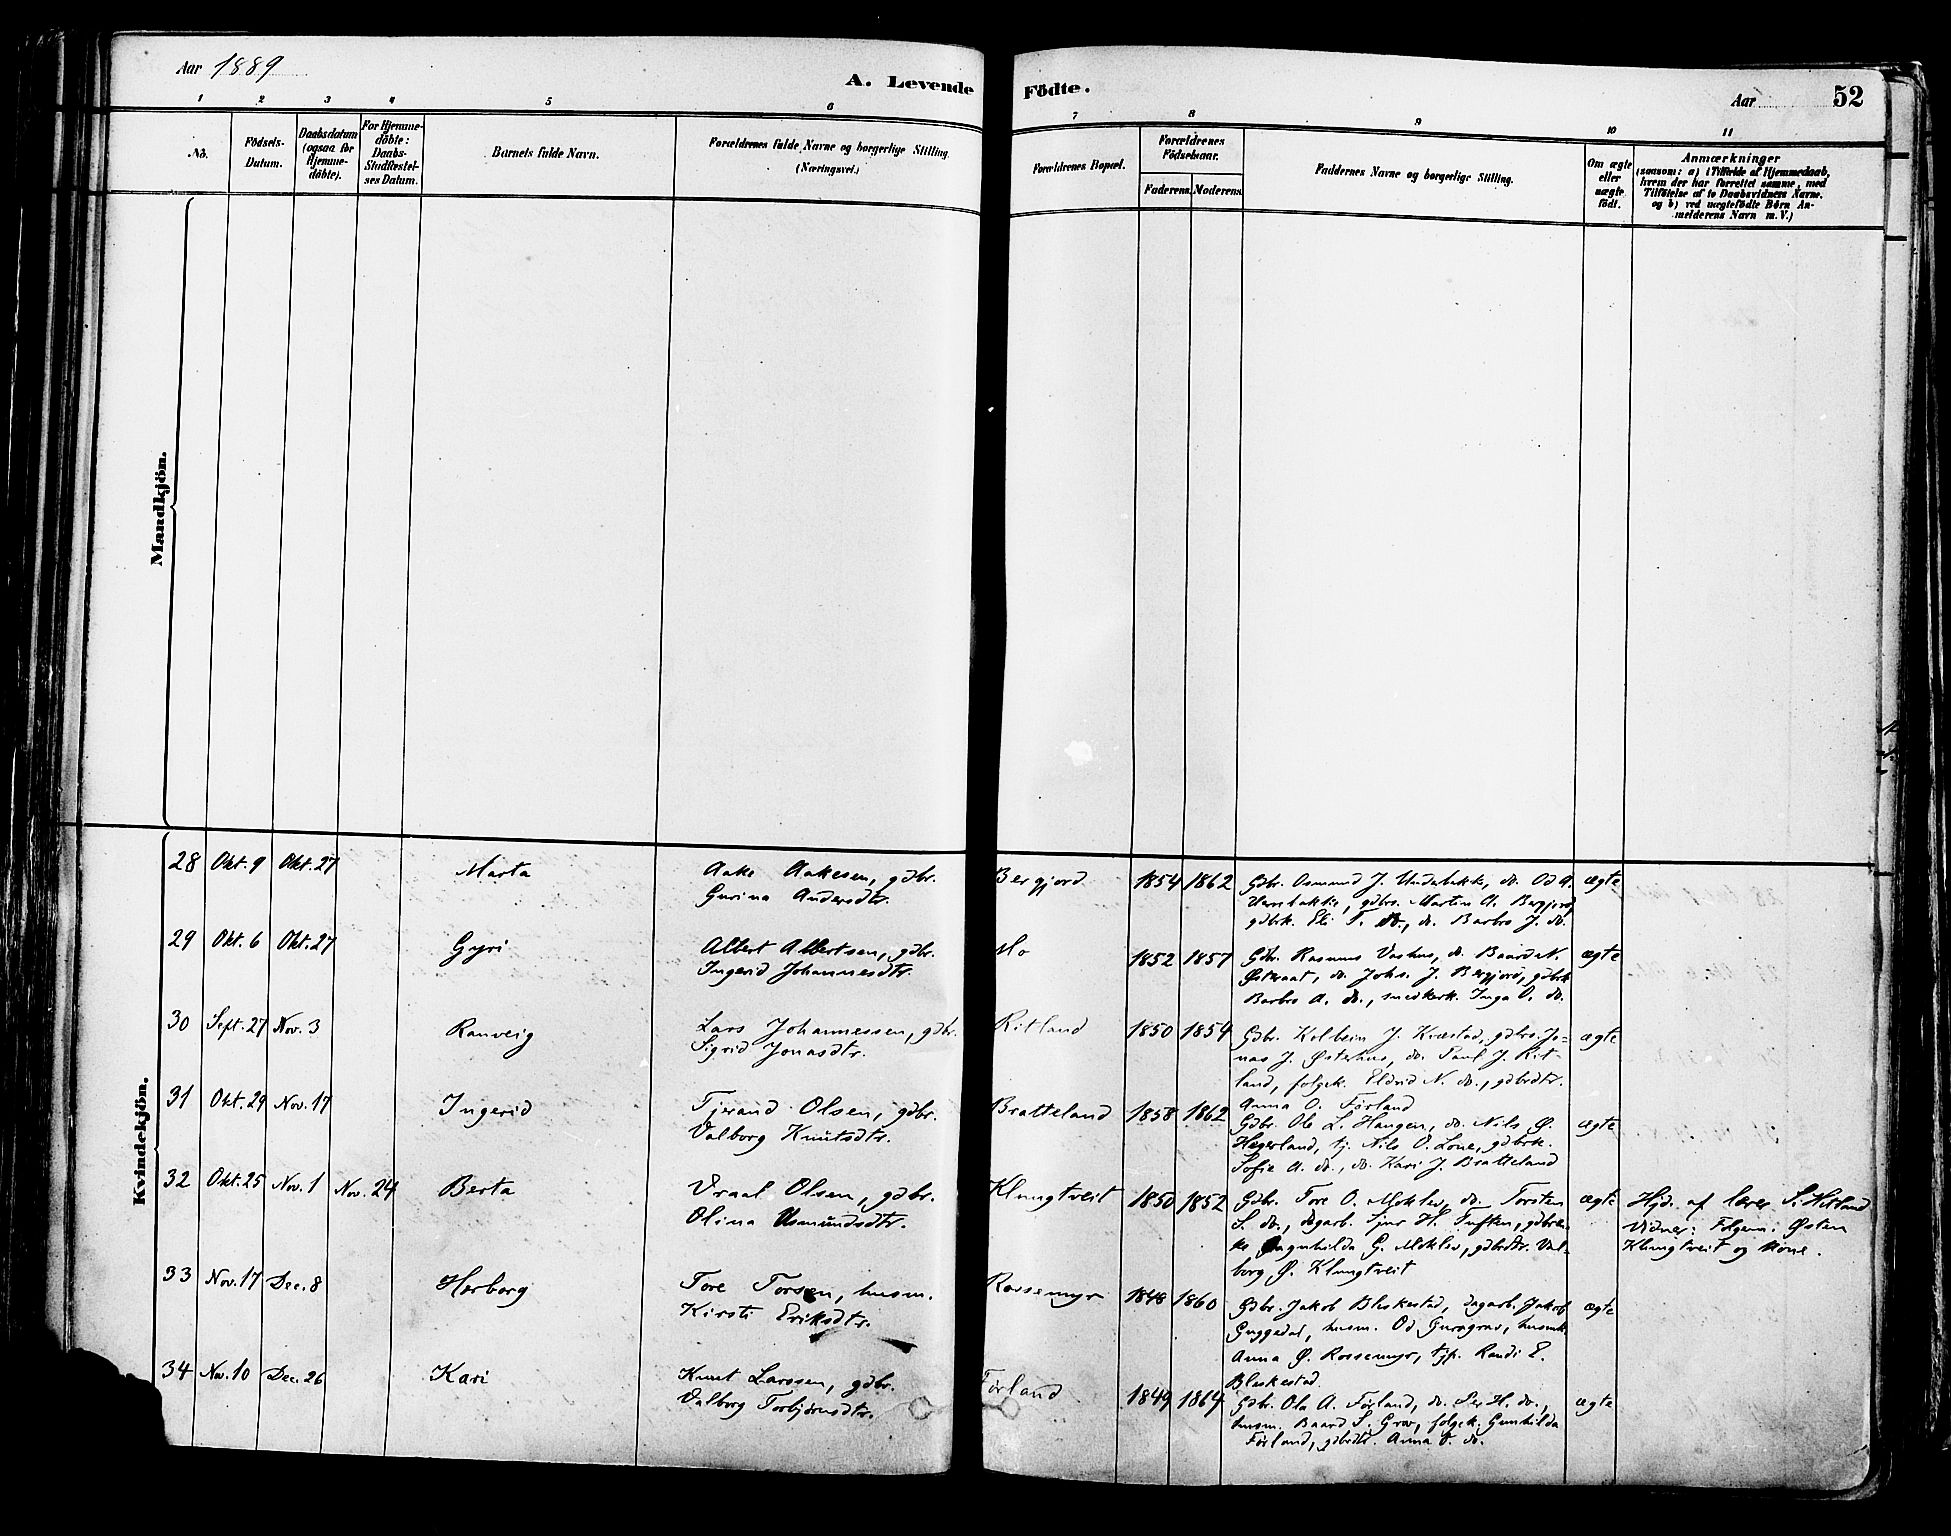 Aar 1889
A. Levende Födte.
Aar 52
1 2 3 4 5 6 7 8 9 10 11
No.
Födsels-
Datum.
Daabsdatum
(ogsaa for
Hjemme-
döbte).
For Hjemme-
döbte:
Daabs-
Stadfæstel-
ses Datum.
Barnets fulde Navn.
Forældrenes fulde Navne og borgerlige Stilling.
(Næringsvei.)
Forældrenes Bopæl.
Forældrenes
Födselsaar.
Faderens. Moderens.
Faddernes Navne og borgerlige Stilling.
Om ægte
eller
uægte
födt.
Anmærkninger
(saasom: a) i Tilfælde af Hjemmedaab,
hvem der har forrettet samme, med
Tilföielse af to Daabsvidners Navne.
og b) ved uægtefödte Börn An-
melderens Navn m. V.)
Mandkjön.
Kvindekjön.
28 Okt. 9 Okt. 27 Marta
Aake Aakesen, gdbr.
Gurina Andersdtr.
Bergjord 1854 1862
Gdbr. Osmund J. Underbakke, do. Od A.
gdbrs. Martin A. Bergjord,
gdbrk. Eli T. do., do. Barbro J. do.
ægte
29 Okt. 6 Okt. 27 Gyri
Albert Albertsen, gdbr.
Ingerid Johannesdtr.
Mo 1852 1857
Gdbr. Rasmus Vashus, do. Baard N.
Østeraat, do. Johs. J. Bergjord, gdbrk
Barbro A. do., smedkerk. Inga O. do.
ægte
30 Sept. 27 Nov. 3 Ranveig
Lars Johannessen, gdbr.
Sigrid Jonasdtr.
Ritland 1850 1854
Gdbr. Kolbein J. Kvæstad, gdbrs. Jo-
nas J. Østerhus, do. Paul J. Rit-
land, folgek. Eldrid N. do., gdbrdtr.
Anna O. Førland
ægte
31 Okt. 29 Nov. 17 Ingerid
Tjerand Olsen, gdbr.
Valborg Knutsdtr.
Bratteland 1858 1862
Gdbr. Ole L. Haugen, do. Nils Ø.
Hægerland, tj. Nils O. Lone, gdbrk.
Sofie A. do., do. Kari J. Bratteland
ægte
32 Okt. 25 Nov. 1 Nov. 24 Berta
Vraal Olsen, gdbr.
Olina Osmundsdtr.
Klungtveit 1850 1852
Gdbr. Tore O. Moklev, do. Torsten
S. do., dagarb. Sjur H. Tuften, gdbren-
ke Gunhilda G. Moklev, gdbrdtr. Val-
borg Ø. Klungtveit
ægte
Hjd. af lærer S. Ritland
Vidner: Folgem. Østen
Klungtveit og kone.
33 Nov. 17 Dec. 8 Herborg
Tore Torsen, husm.
Kirsti Eriksdtr.
Rossemyr 1848 1860
Gdbr. Jakob Bleskestad, dagarb. Jakob
Guggedal, husm. Od husmk.
Anna Ø. Rossemyr, tjp. Randi E.
Bleskestad
ægte
34 Nov. 10 Dec. 26 Kari
Knut Larssen, gdbr.
Valborg Torbjørnsdtr.
Førland 1849 1864
Gdbr. Ola A. Førland, do. Per H. do.,
husm. Baard S. Grov, folgek. Gunhilda
Førland, gdbrdtr. Anna O. do.
ægte